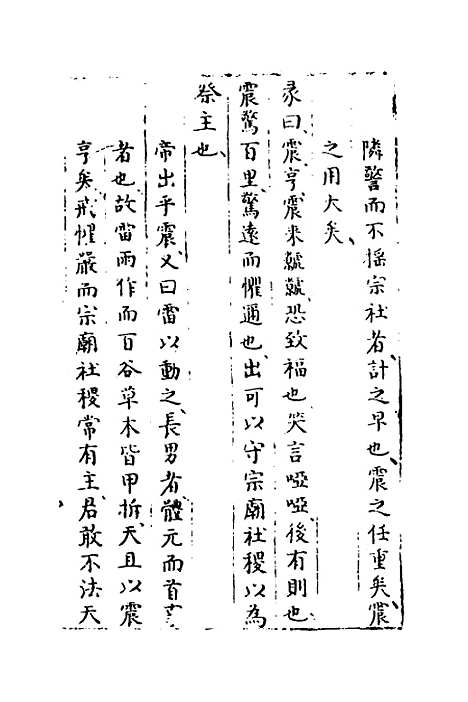 隣警而不搖宗社者計之早也震之任重矣震
之用大矣
彖曰震亨震来虩虩恐致福也笑言啞啞後有則也
震驚百里驚遠而懼邇也出可以守宗廟社稷以為
祭主也
帝出乎震又曰雷以動之長男者體元而首
者也故雷雨作而百谷草木皆甲拆天且以震
亨矣戒懼嚴而宗廟社稷常有主君敢不法天